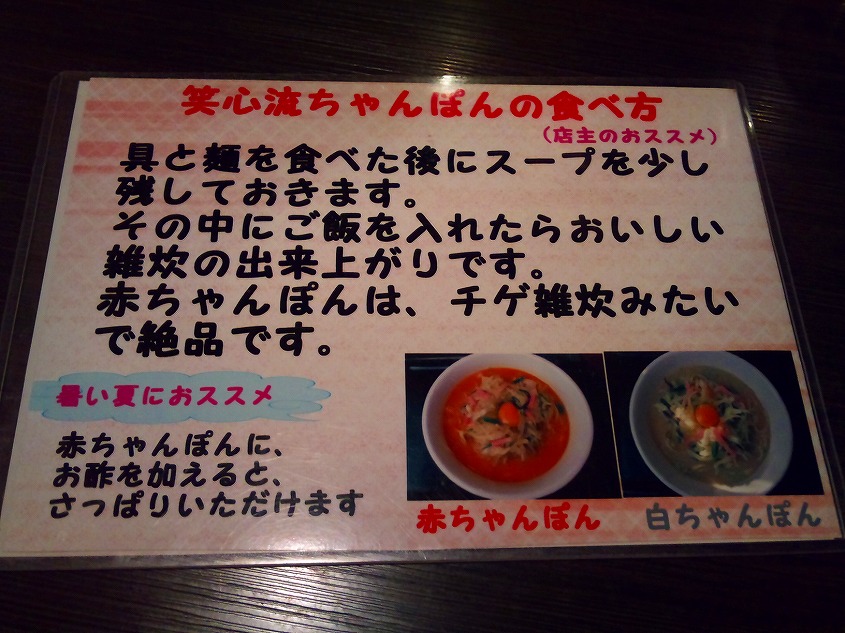 笑心流ちゃんぽんの食べ方
(店主のおススメ)
具と麺を食べた後にスープを少し
残しておきます。
その中にご飯を入れたらおいしい
雑炊の出来上がりです。
赤ちゃんぽんは、チゲ雑炊みたい
で絶品です。
暑い夏におススメ
赤ちゃんぽんに、
お酢を加えると、
さっぱりいただけます
赤ちゃんぽん
白ちゃんぽん